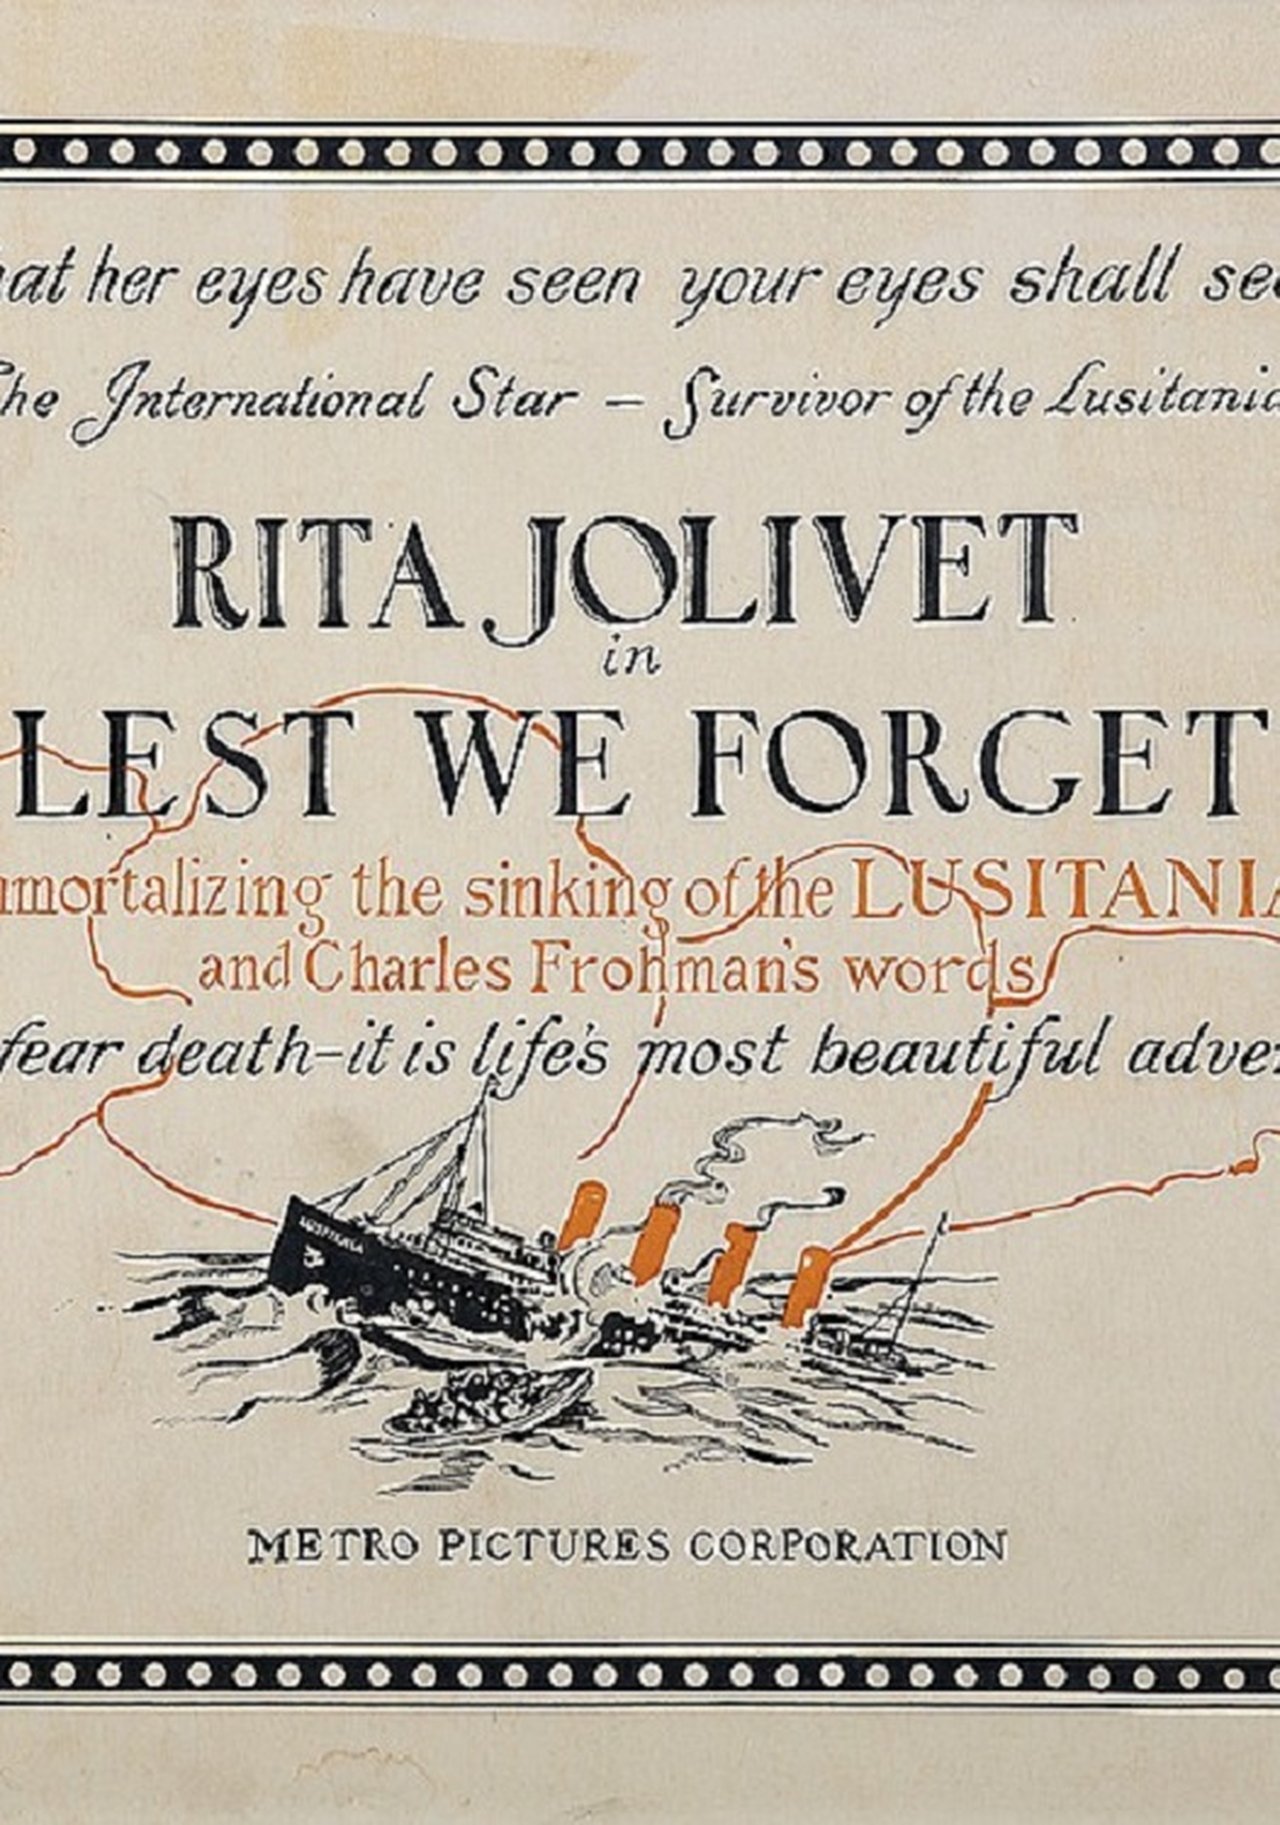 hat her eyes have seen your eyes shall see
The International Star – Survivor of the Lusitania
RITA JOLIVET
in
LEST WE FORGET
mmortalizing the sinking of the LUSITANIA
and Charles Frohman's words
fear death–it is life's most beautiful adve
LUSITANIA
METRO PICTURES CORPORATION